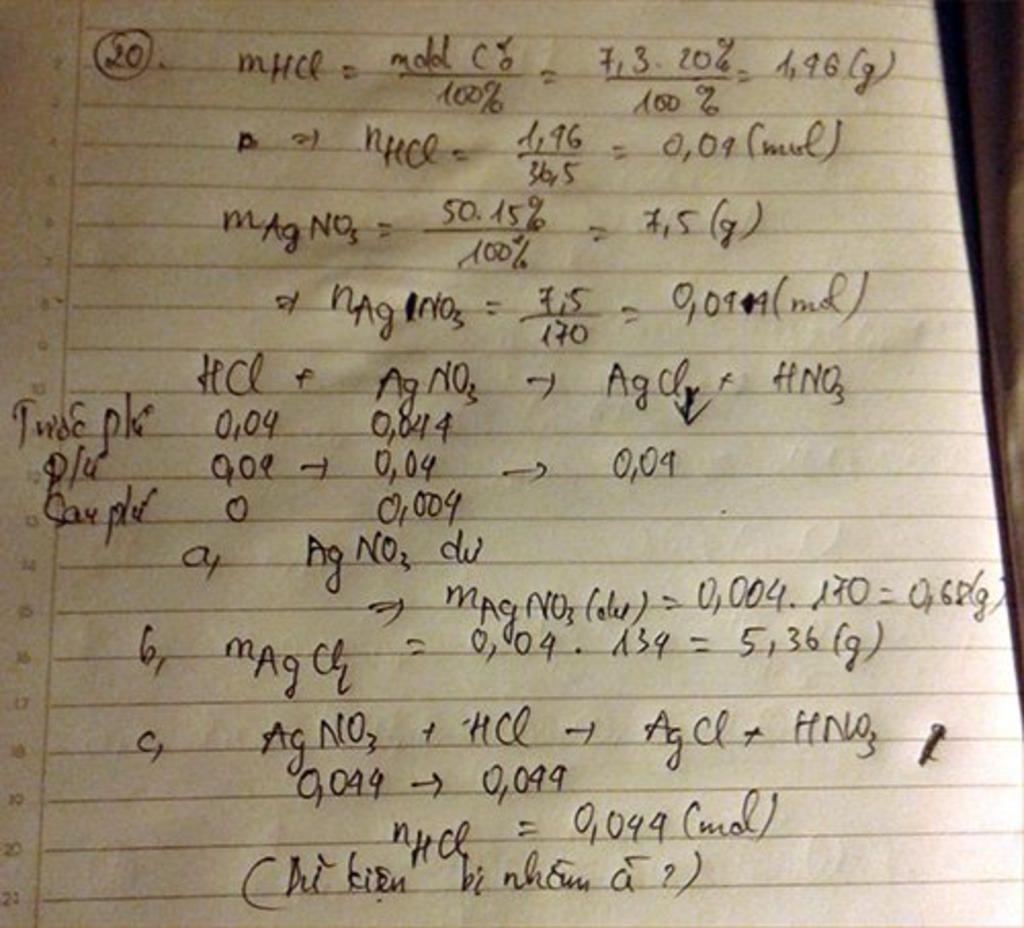 20. mHCl = mdd C% / 100% = 7,3 . 20% / 100% = 1,46 (g)
⇒ nHCl = 1,46 / 36,5 = 0,04 (mol)
mAgNO3 = 50.15% / 100% = 7,5 (g)
⇒ nAgNO3 = 7,5 / 170 = 0,044 (mol)
HCl + AgNO3 → AgCl↓ + HNO3
Trước p/ư 0,04 0,044
P/ư 0,04 → 0,04 → 0,04
Sau p/ư 0 0,004
a, AgNO3 dư
⇒ mAgNO3 (dư) = 0,004. 170 = 0,68 (g)
b, mAgCl = 0,04 . 134 = 5,36 (g)
c, AgNO3 + HCl → AgCl + HNO3
0,044 → 0,044
nHCl = 0,044 (mol)
(Dữ kiện bị nhầm à ?)